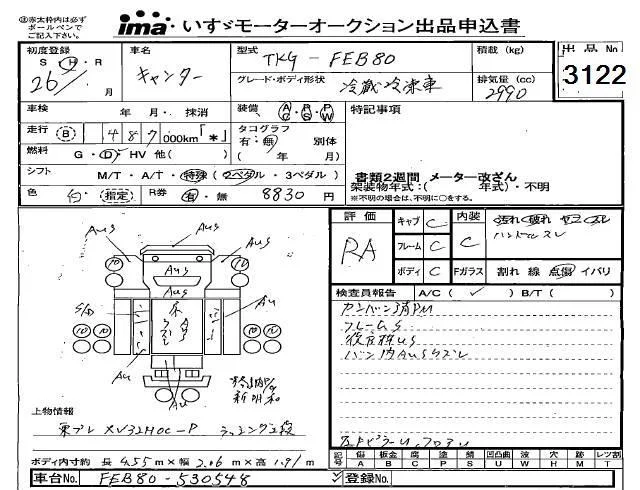 ※赤太枠内は必ず
ボールペンで
ご記入下さい。
ima いすゞモーターオークション出品申込書
初度登録 S・H・R 26/ 月
車名 キャンター
型式 TKG-FEB80
積載 (kg)
出品No 3122
グレード・ボディ形状 冷蔵冷凍車
排気量 (cc) 2990
車検 年 月・ 抹消
装備 AC PS PW
特記事項
走行 B 487 000km「*」
タコグラフ 有・無 別体 ( 年 月)
燃料 G・D・HV 他( )
シフト M/T・A/T・特殊(2ペダル・3ペダル)
書類2週間 メーター改ざん
架装物年式:( 年式)・不明
※不明の場合は、不明に○をする。
色 白 指定
R券 有・無 8830 円
評価 RA
キャブ C
フレーム C
ボディ C
内装 C
汚れ 破れ
ハンドルスレ
Fガラス 割れ 線 点傷 イバリ
検査員報告 A/C ( ✓ ) B/T ( )
カンバン消PM
フレームS
バン内AUSウズレ
AUS
AUS
AUS
S/D
AU
AU
AU
上物情報
東プレ XV32HOC-P ラッシング2段
ボディ内寸約 長 4.55 m×幅 2.06 m×高 1.91 m
記号 傷 A 板金 B 腐 C 塗 P 錆 S 凹凸曲 U 波 W 穴 H 跡 M レツ割 T
車台No. FEB80-530548
登録No.